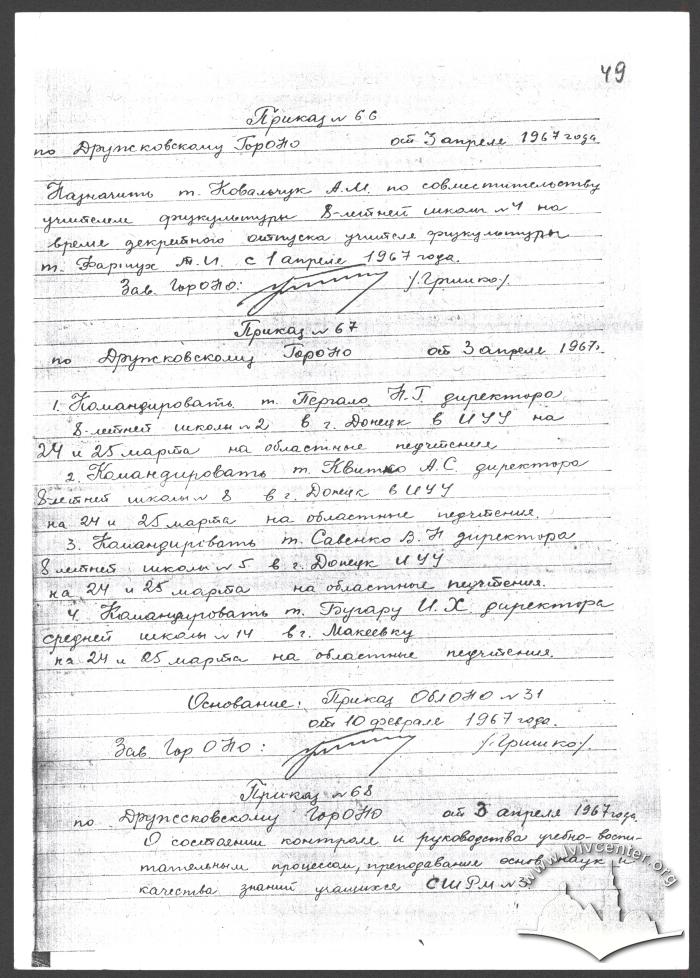 49
Приказ №66
по Дружковскому ГорОНО от 3 апреля 1967 года.
Назначить т. Ковальчук А.М. по совместительству
учителем физкультуры 8-летней школы №4 на
время декретного отпуска учителя физкультуры
т. Фартух Т.И. с 1 апреля 1967 года.
Зав. ГорОНО: /Гришко/.
Приказ №67
по Дружковскому ГорОНО от 3 апреля 1967г.
1. Командировать т. Пергало Н.Г. директора
8-летней школы №2 в г. Донецк в ИУУ на
24 и 25 марта на областные педчтения
2. Командировать т. Квитко А.С. директора
8летней школы №8 в г. Донецк в ИУУ
на 24 и 25 марта на областные педчтения.
3. Командировать т. Савенко В.Н директора
8 летней школы №5 в г. Донецк ИУУ
на 24 и 25 марта на областные педчтения.
4. Командировать т. Бугару И.Х директора
средней школы №14 в г. Макеевку
на 24 и 25 марта на областные педчтения.
Основание: Приказ ОблОНО №31
от 10 февраля 1967 года.
Зав ГорОНО: /Гришко/.
Приказ №68
по Дружковскому ГорОНО от 3 апреля 1967 года.
О состоянии контроля и руководства учебно-воспи-
тательным процессом, преподавание основ наук и
качества знаний учащихся СШРМ №3.
www.lvivcenter.org